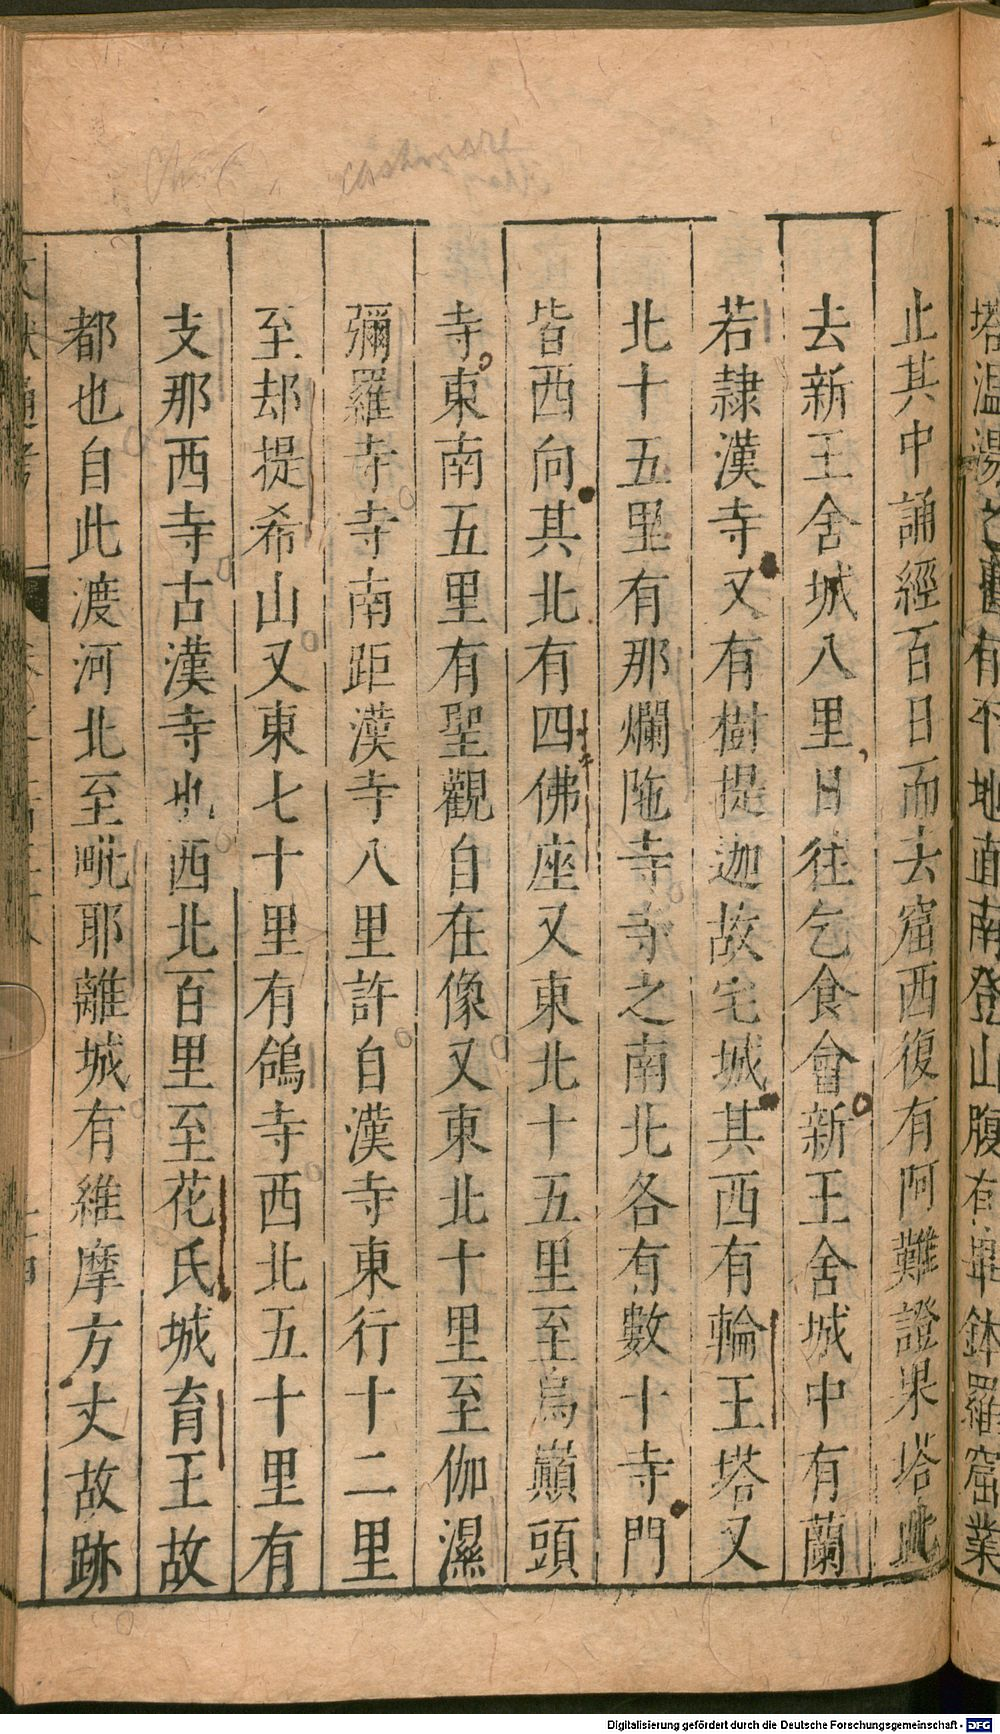 塔温湯之舊有平地直南登山腹有畢鉢羅窟業
止其中誦經百日而去窟西復有阿難證果塔此
去新王舍城八里日往乞食會新王舍城中有蘭
若隷漢寺又有樹提迦故宅城其西有輪王塔又
北十五里有那爛陁寺寺之南北各有數十寺門
皆西向其北有四佛座又東北十五里至烏巔頭
寺東南五里有聖觀自在像又東北十里至伽濕
彌羅寺寺南距漢寺八里許自漢寺東行十二里
至却提希山又東七十里有鴿寺西北五十里有
支那西寺古漢寺也西北百里至花氏城育王故
都也自此渡河北至毗耶離城有維摩方丈故跡
cashmere
Digitalisierung gefördert durch die Deutsche Forschungsgemeinschaft - DFG